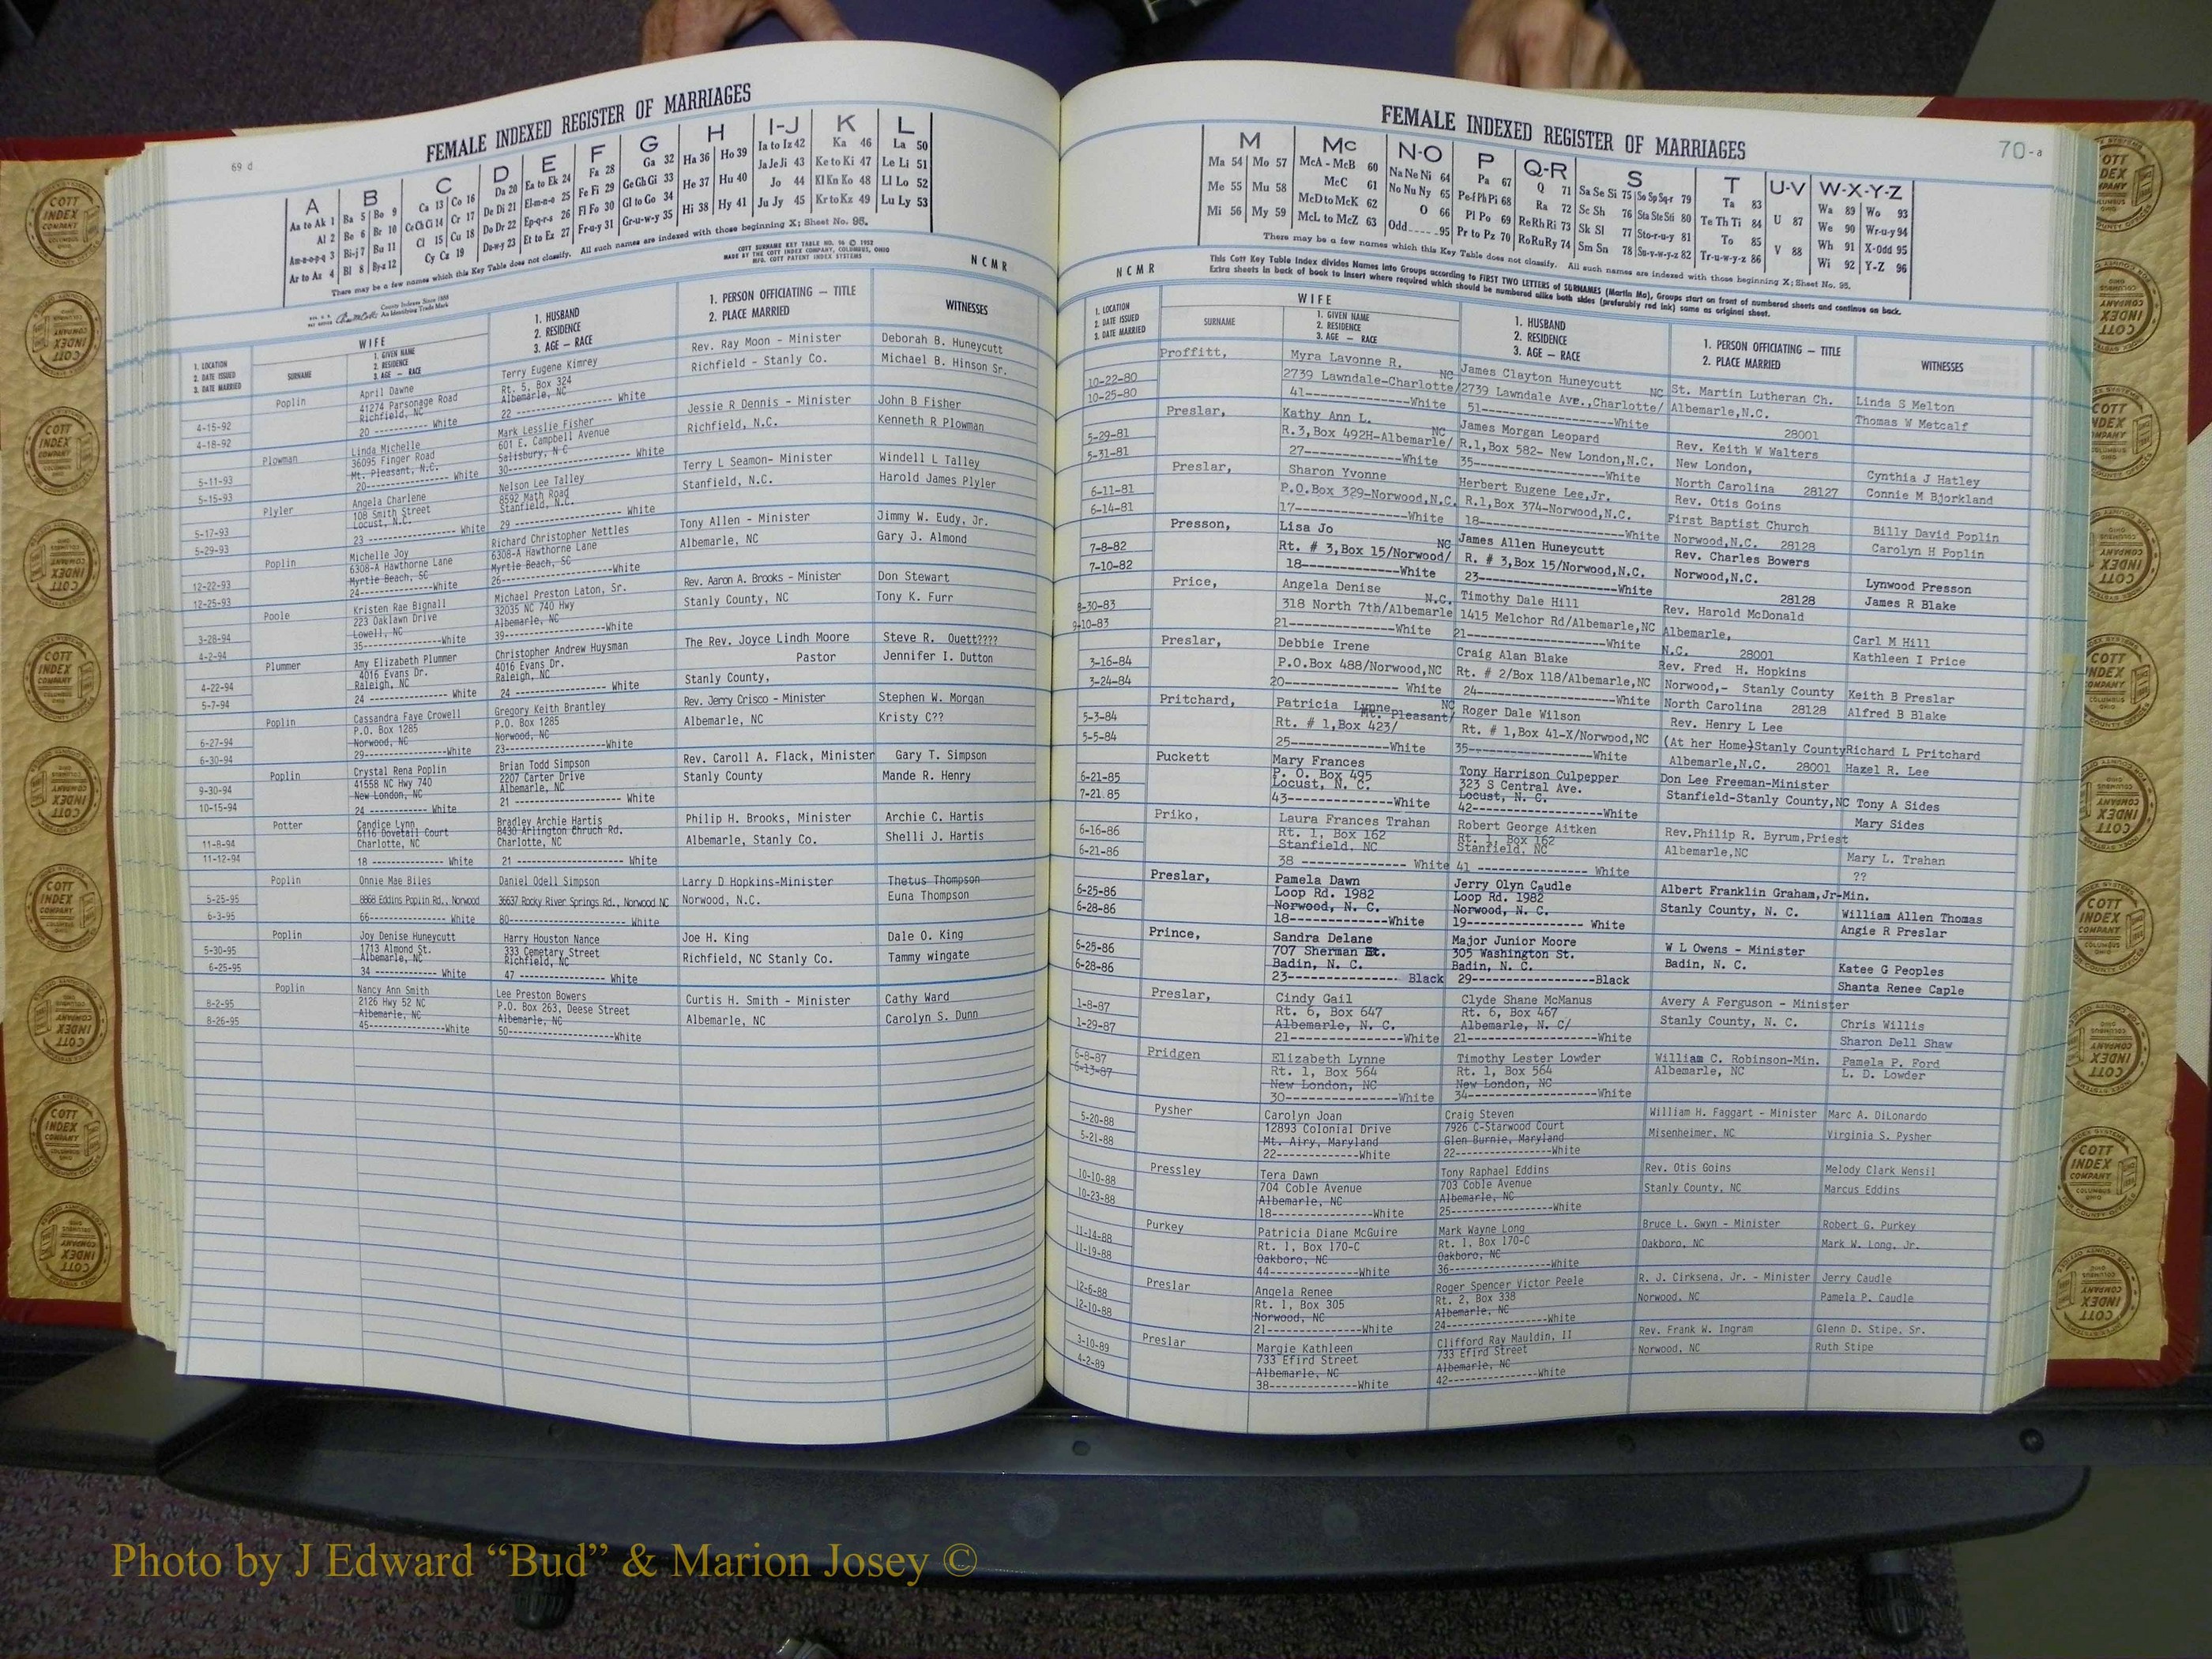 69 d
FEMALE INDEXED REGISTER OF MARRIAGES
A B C D E F G H I-J K L
Aa to Ak 1 Ba 5 Bo 9 Ca 13 Co 16 Da 20 Ea to Ek 24 Fa 28 Ga 32 Ha 36 Ho 39 Ia to Iz 42 Ka 46 La 50
Al 2 Be 6 Br 10 Ce Ch Ci 14 Cr 17 De Di 21 El-m-n-o 25 Fe Fi 29 Ge Gh Gi 33 He 37 Hu 40 Ja Je Ji 43 Ke to Ki 47 Le Li 51
Am-n-o-p-q 3 Bi-j 7 Bu 11 Cl 15 Cu 18 Do Dr 22 Ep-q-r-s 26 Fl Fo 30 Gl to Go 34 Hi 38 Hy 41 Jo 44 Kl Kn Ko 48 Ll Lo 52
Ar to Az 4 Bl 8 By-z 12 Cy Cz 19 De-w-y 23 Et to Ez 27 Fr-u-y 31 Gr-u-w-y 35 Ju Jy 45 Kr to Kz 49 Lu Ly 53
There may be a few names which this Key Table does not classify. All such names are indexed with those beginning X; Sheet No. 95.
COTT SURNAME KEY TABLE NO. 96 © 1952
MADE BY THE COTT INDEX COMPANY, COLUMBUS, OHIO
MFG. COTT PATENT INDEX SYSTEMS
County Indexes Since 1888
An Identifying Trade Mark
N C M R
1. LOCATION
2. DATE ISSUED
3. DATE MARRIED
WIFE
SURNAME
1. GIVEN NAME
2. RESIDENCE
3. AGE — RACE
1. HUSBAND
2. RESIDENCE
3. AGE — RACE
1. PERSON OFFICIATING — TITLE
2. PLACE MARRIED
WITNESSES
4-15-92
4-18-92
Poplin
April Dawne
41274 Parsonage Road
Richfield, NC
20 ----------- White
Terry Eugene Kimrey
Rt. 5, Box 324
Albemarle, NC
22 ---------------- White
Rev. Ray Moon - Minister
Richfield - Stanly Co.
Deborah B. Huneycutt
Michael B. Hinson Sr.
5-11-93
5-15-93
Plowman
Linda Michelle
36095 Finger Road
Mt. Pleasant, N.C.
20--------------- White
Mark Lesslie Fisher
601 E. Campbell Avenue
Salisbury, N C
30------------------- White
Jessie R Dennis - Minister
Richfield, N.C.
John B Fisher
Kenneth R Plowman
5-17-93
5-29-93
Plyler
Angela Charlene
108 Smith Street
Locust, N.C.
23 --------------- White
Nelson Lee Talley
8592 Math Road
Stanfield, N.C.
29 ---------------- White
Terry L Seamon- Minister
Stanfield, N.C.
Windell L Talley
Harold James Plyler
12-22-93
12-25-93
Poplin
Michelle Joy
6308-A Hawthorne Lane
Myrtle Beach, SC
24---------------White
Richard Christopher Nettles
6308-A Hawthorne Lane
Myrtle Beach, SC
26-------------------White
Tony Allen - Minister
Albemarle, NC
Jimmy W. Eudy, Jr.
Gary J. Almond
3-28-94
4-2-94
Poole
Kristen Rae Bignall
223 Oaklawn Drive
Lowell, NC
35---------------White
Michael Preston Laton, Sr.
32035 NC 740 Hwy
Albemarle, NC
39-----------------White
Rev. Aaron A. Brooks - Minister
Stanly County, NC
Don Stewart
Tony K. Furr
4-22-94
5-7-94
Plummer
Amy Elizabeth Plummer
4016 Evans Dr.
Raleigh, NC
24 --------------- White
Christopher Andrew Huysman
4016 Evans Dr.
Raleigh, NC
24 ---------------- White
The Rev. Joyce Lindh Moore
Pastor
Stanly County,
Steve R. Ouett????
Jennifer I. Dutton
6-27-94
6-30-94
Poplin
Cassandra Faye Crowell
P.O. Box 1285
Norwood, NC
29---------------White
Gregory Keith Brantley
P.O. Box 1285
Norwood, NC
23-----------------White
Rev. Jerry Crisco - Minister
Albemarle, NC
Stephen W. Morgan
Kristy C??
9-30-94
10-15-94
Poplin
Crystal Rena Poplin
41558 NC Hwy 740
New London, NC
24 ----------- White
Brian Todd Simpson
2207 Carter Drive
Albemarle, NC
21 ---------------- White
Rev. Caroll A. Flack, Minister
Stanly County
Gary T. Simpson
Mande R. Henry
11-8-94
11-12-94
Potter
Candice Lynn
6116 Dovetail Court
Charlotte, NC
18 -------------- White
Bradley Archie Hartis
8430 Arlington Chruch Rd.
Charlotte, NC
21 ---------------- White
Philip H. Brooks, Minister
Albemarle, Stanly Co.
Archie C. Hartis
Shelli J. Hartis
5-25-95
6-3-95
Poplin
Onnie Mae Biles
8868 Eddins Poplin Rd., Norwood
66--------------- White
Daniel Odell Simpson
36637 Rocky River Springs Rd., Norwood NC
80----------------- White
Larry D Hopkins-Minister
Norwood, N.C.
Thetus Thompson
Euna Thompson
5-30-95
6-25-95
Poplin
Joy Denise Huneycutt
1713 Almond St.
Albemarle, NC
34 ------------ White
Harry Houston Nance
333 Cemetary Street
Richfield, NC
47 ---------------- White
Joe H. King
Richfield, NC Stanly Co.
Dale O. King
Tammy wingate
8-2-95
8-26-95
Poplin
Nancy Ann Smith
2126 Hwy 52 NC
Albemarle, NC
45---------------White
Lee Preston Bowers
P.O. Box 263, Deese Street
Albemarle, NC
50-----------------White
Curtis H. Smith - Minister
Albemarle, NC
Cathy Ward
Carolyn S. Dunn
70-a
FEMALE INDEXED REGISTER OF MARRIAGES
M Mc N-O P Q-R S T U-V W-X-Y-Z
Ma 54 Mo 57 McA - McB 60 Na Ne Ni 64 Pa 67 Q 71 Sa Se Si 75 So Sp Sq-r 79 Ta 83 U 87 Wa 89 Wo 93
Me 55 Mu 58 McC 61 No Nu Ny 65 Pe-f Ph Pi 68 Ra 72 Sc Sh 76 Sta Ste Sti 80 Te Th Ti 84 V 88 We 90 Wr-u-y 94
Mi 56 My 59 McD to McK 62 O 66 Pl Po 69 Re Rh Ri 73 Sk Sl 77 Sto-r-u-y 81 To 85 Wh 91 X-Odd 95
McL to McZ 63 Odd 95 Pr to Pz 70 Ro Ru Ry 74 Sm Sn 78 Su-v-w-y-z 82 Tr-u-w-y-z 86 Wi 92 Y-Z 96
There may be a few names which this Key Table does not classify. All such names are indexed with those beginning X; Sheet No. 95.
This Cott Key Table Index divides Names into Groups according to FIRST TWO LETTERS of SURNAMES (Martin Ma), Groups start on front of numbered sheets and continue on back.
Extra sheets in back of book to insert where required which should be numbered alike both sides (preferably red ink) same as original sheet.
N C M R
1. LOCATION
2. DATE ISSUED
3. DATE MARRIED
WIFE
SURNAME
1. GIVEN NAME
2. RESIDENCE
3. AGE — RACE
1. HUSBAND
2. RESIDENCE
3. AGE — RACE
1. PERSON OFFICIATING — TITLE
2. PLACE MARRIED
WITNESSES
10-22-80
10-25-80
Proffitt,
Myra Lavonne R.
2739 Lawndale-Charlotte/ NC
41---------------White
James Clayton Huneycutt
2739 Lawndale Ave.,Charlotte/ NC
51---------------White
St. Martin Lutheran Ch.
Albemarle,N.C.
28001
Linda S Melton
Thomas W Metcalf
5-29-81
5-31-81
Preslar,
Kathy Ann L.
R.3,Box 492H-Albemarle/ NC
27---------------White
James Morgan Leopard
R.1,Box 582- New London,N.C.
35---------------White
Rev. Keith W Walters
New London,
North Carolina 28127
Cynthia J Hatley
Connie M Bjorkland
6-11-81
6-14-81
Preslar,
Sharon Yvonne
P.O.Box 329-Norwood,N.C.
17---------------White
Herbert Eugene Lee,Jr.
R.1,Box 374-Norwood,N.C.
18---------------White
Rev. Otis Goins
First Baptist Church
Norwood,N.C. 28128
Billy David Poplin
Carolyn H Poplin
7-8-82
7-10-82
Presson,
Lisa Jo
Rt. # 3,Box 15/Norwood/ NC
18---------------White
James Allen Huneycutt
R. # 3,Box 15/Norwood,N.C.
23---------------White
Rev. Charles Bowers
Norwood,N.C.
28128
Lynwood Presson
James R Blake
8-30-83
9-10-83
Price,
Angela Denise
318 North 7th/Albemarle N.C.
21---------------White
Timothy Dale Hill
1415 Melchor Rd/Albemarle,NC
21---------------White
Rev. Harold McDonald
Albemarle,
N.C. 28001
Carl M Hill
Kathleen I Price
3-16-84
3-24-84
Preslar,
Debbie Irene
P.O.Box 488/Norwood,NC
20--------------- White
Craig Alan Blake
Rt. # 2/Box 118/Albemarle,NC
24---------------White
Rev. Fred H. Hopkins
Norwood,- Stanly County
North Carolina 28128
Keith B Preslar
Alfred B Blake
5-3-84
5-5-84
Pritchard,
Patricia Lynne
Mt. Pleasant/ NC
Rt. # 1,Box 423/
25---------------White
Roger Dale Wilson
Rt. # 1,Box 41-X/Norwood,NC
35---------------White
Rev. Henry L Lee
(At her Home)Stanly County
Albemarle,N.C. 28001
Richard L Pritchard
Hazel R. Lee
6-21-85
7-21.85
Puckett
Mary Frances
P. O. Box 495
Locust, N. C.
43---------------White
Tony Harrison Culpepper
323 S Central Ave.
Locust, N. C.
42---------------White
Don Lee Freeman-Minister
Stanfield-Stanly County,NC
Tony A Sides
Mary Sides
6-16-86
6-21-86
Priko,
Laura Frances Trahan
Rt. 1, Box 162
Stanfield, NC
38 --------------- White
Robert George Aitken
Rt. 1, Box 162
Stanfield, NC
41 --------------- White
Rev.Philip R. Byrum,Priest
Albemarle,NC
Mary L. Trahan
??
6-25-86
6-28-86
Preslar,
Pamela Dawn
Loop Rd. 1982
Norwood, N. C.
18---------------White
Jerry Olyn Caudle
Loop Rd. 1982
Norwood, N. C.
19--------------- White
Albert Franklin Graham,Jr-Min.
Stanly County, N. C.
William Allen Thomas
Angie R Preslar
6-25-86
6-28-86
Prince,
Sandra Delane
707 Sherman St.
Badin, N. C.
23---------------- Black
Major Junior Moore
305 Washington St.
Badin, N. C.
29---------------Black
W L Owens - Minister
Badin, N. C.
Katee G Peoples
Shanta Renee Caple
1-8-87
1-29-87
Preslar,
Cindy Gail
Rt. 6, Box 647
Albemarle, N. C.
21---------------White
Clyde Shane McManus
Rt. 6, Box 467
Albemarle, N. C/
21---------------White
Avery A Ferguson - Minister
Stanly County, N. C.
Chris Willis
Sharon Dell Shaw
6-8-87
6-13-87
Pridgen
Elizabeth Lynne
Rt. 1, Box 564
New London, NC
30---------------White
Timothy Lester Lowder
Rt. 1, Box 564
New London, NC
34---------------White
William C. Robinson-Min.
Albemarle, NC
Pamela P. Ford
L. D. Lowder
5-20-88
5-21-88
Pysher
Carolyn Joan
12893 Colonial Drive
Mt. Airy, Maryland
22---------------White
Craig Steven
7926 C-Starwood Court
Glen Burnie, Maryland
22---------------White
William H. Faggart - Minister
Misenheimer, NC
Marc A. DiLonardo
Virginia S. Pysher
10-10-88
10-23-88
Pressley
Tera Dawn
704 Coble Avenue
Albemarle, NC
18---------------White
Tony Raphael Eddins
703 Coble Avenue
Albemarle, NC
25---------------White
Rev. Otis Goins
Stanly County, NC
Melody Clark Wensil
Marcus Eddins
11-14-88
11-19-88
Purkey
Patricia Diane McGuire
Rt. 1, Box 170-C
Oakboro, NC
44---------------White
Mark Wayne Long
Rt. 1, Box 170-C
Oakboro, NC
36---------------White
Bruce L. Gwyn - Minister
Oakboro, NC
Robert G. Purkey
Mark W. Long, Jr.
12-6-88
12-10-88
Preslar
Angela Renee
Rt. 1, Box 305
Norwood, NC
21---------------White
Roger Spencer Victor Peele
Rt. 2, Box 338
Albemarle, NC
24---------------White
R. J. Cirksena, Jr. - Minister
Norwood, NC
Jerry Caudle
Pamela P. Caudle
3-10-89
4-2-89
Preslar
Margie Kathleen
733 Efird Street
Albemarle, NC
38---------------White
Clifford Ray Mauldin, II
733 Efird Street
Albemarle, NC
42---------------White
Rev. Frank W. Ingram
Norwood, NC
Glenn D. Stipe, Sr.
Ruth Stipe
COTT INDEX COMPANY COLUMBUS OHIO
Photo by J Edward “Bud” & Marion Josey ©